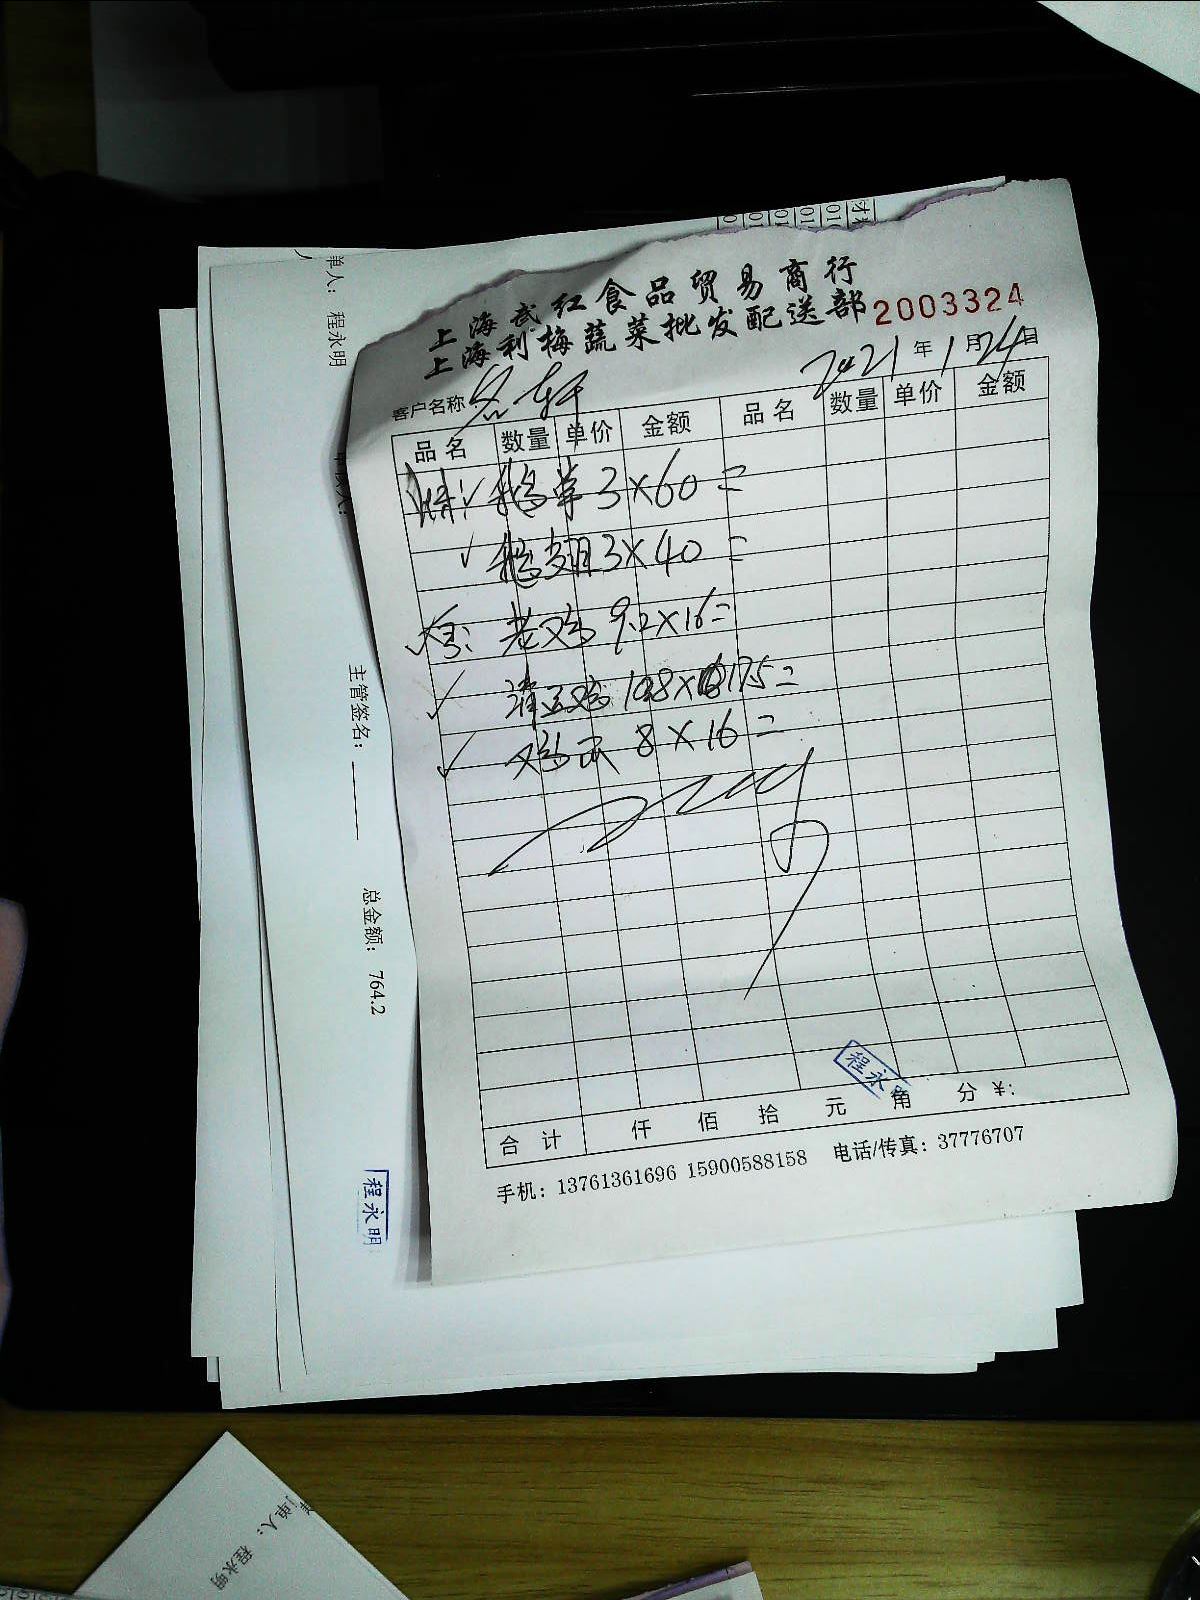 上海武红食品贸易商行
上海利梅蔬菜批发配送部 2003324
客户名称: 名轩 2021年1月24日
品名 数量 单价 金额 品名 数量 单价 金额
鹅掌 3×60=
鹅翅 3×40=
老鸡 9.2×16=
清远鸡 10.8×17.5=
鸡爪 8×16=
程永明
合计 仟 佰 拾 元 角 分 ¥:
手机: 13761361696 15900588158 电话/传真: 37776707
单人: 程永明
主管签名:
总金额: 764.2
程永明
单人: 程永明